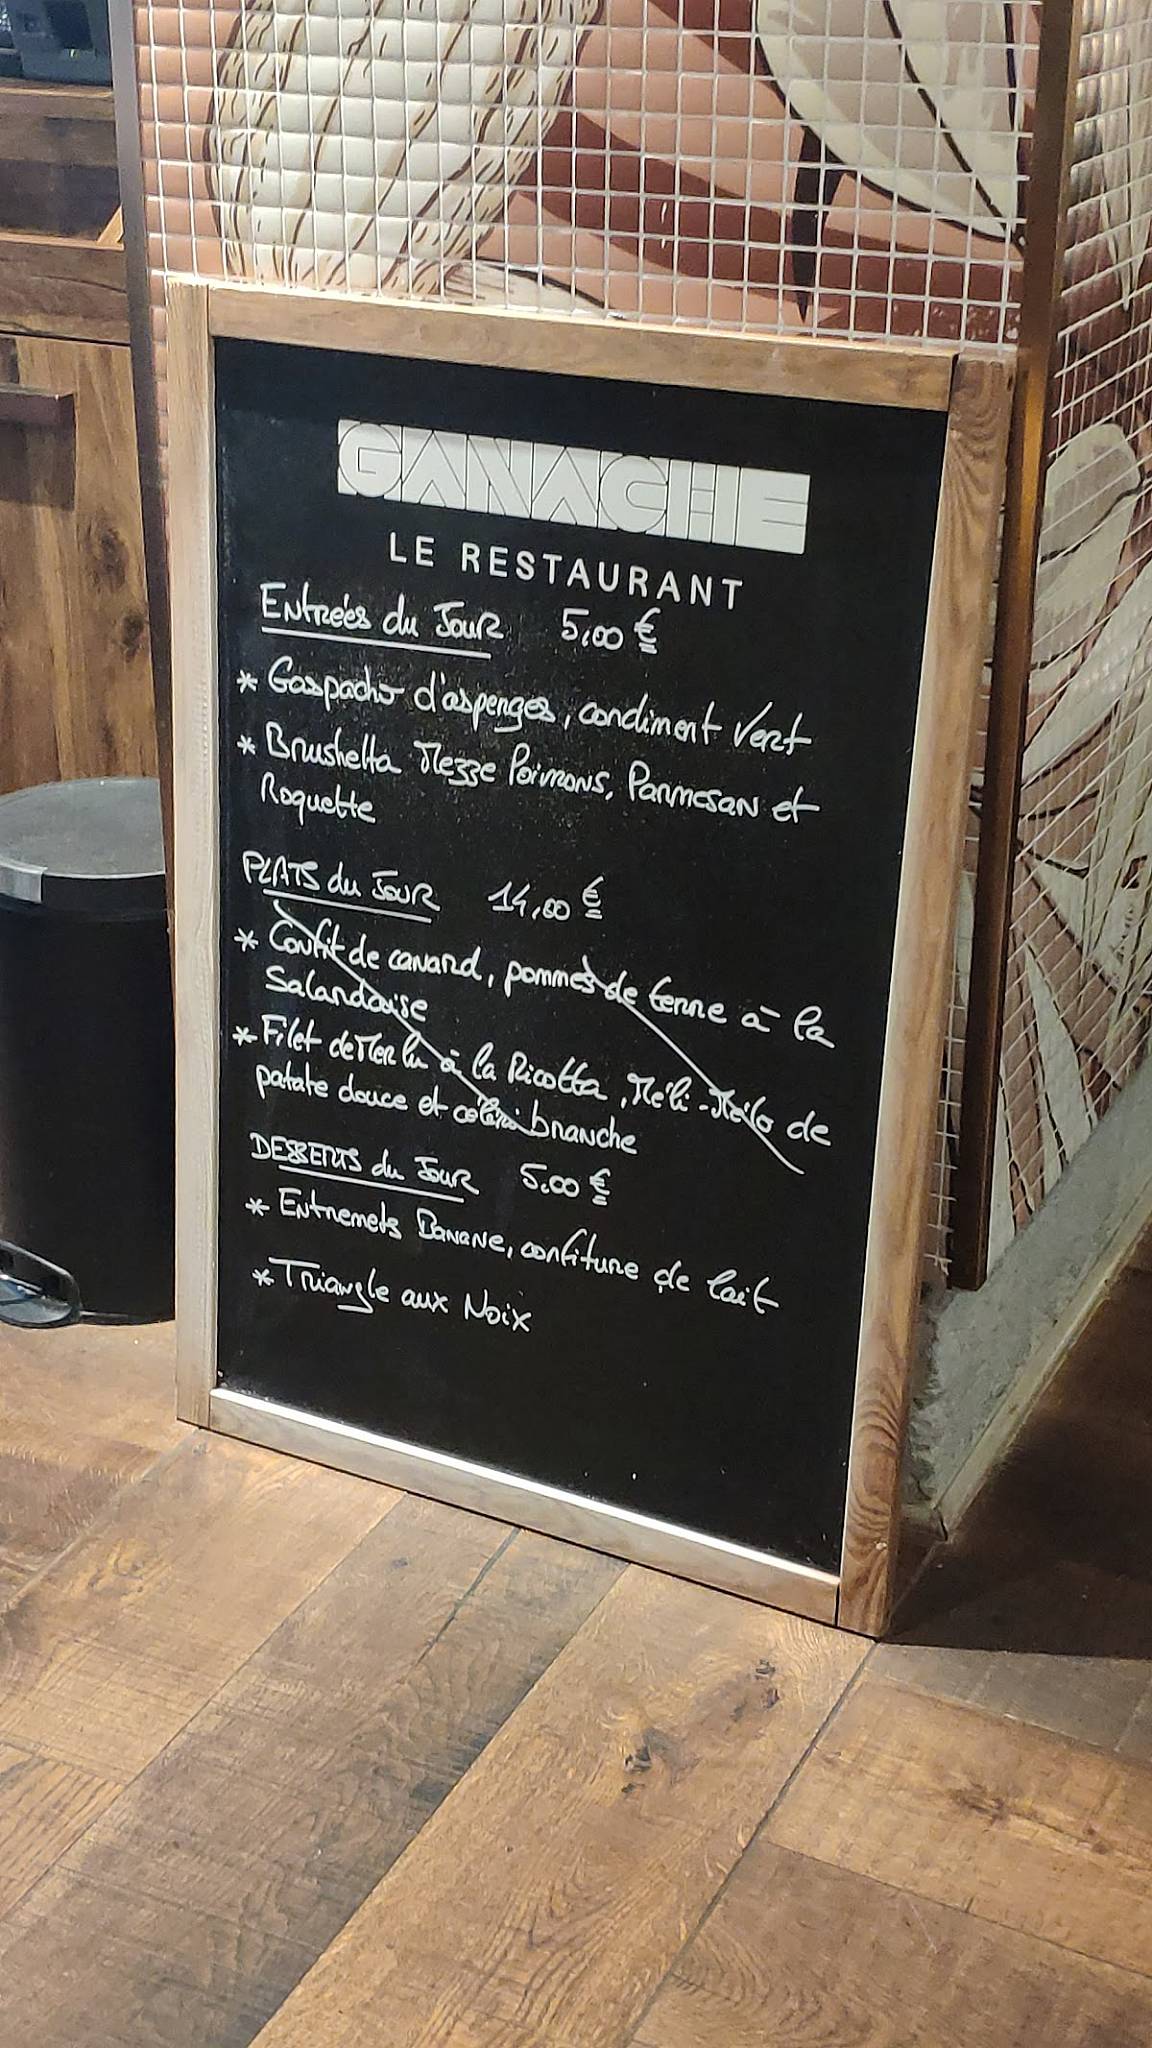 GANACHE
LE RESTAURANT
Entrées du Jour 5,00 €
* Gaspacho d'asperges, condiment Vert
* Brushetta Mezze Poivrons, Parmesan et
Roquette
PLATS du JOUR 14,00 €
* Confit de canard, pommes de terre à la
Salardaise
* Filet de Merlu à la Ricotta, Méli-Mélo de
patate douce et céleri branche
DESSERTS du JOUR 5,00 €
* Entremets Banane, confiture de lait
* Triangle aux Noix